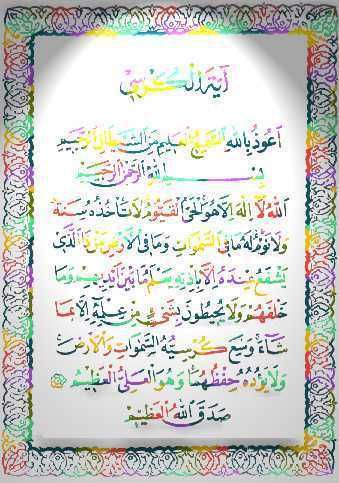 آيَةُ الْكُرْسِيِّ
اَعُوذُ بِاللهِ السَّمِيعِ الْعَلِيمِ مِنَ الشَّيْطَانِ الرَّجِيمِ
بِسْمِ اللهِ الرَّحْمٰنِ الرَّحِيمِ
اَللهُ لَا إِلٰهَ إِلَّا هُوَ الْحَيُّ الْقَيُّومُ لَا تَأْخُذُهُ سِنَةٌ
وَلَا نَوْمٌ لَهُ مَا فِي السَّمٰوَاتِ وَمَا فِي الْأَرْضِ مَنْ ذَا الَّذِي
يَشْفَعُ عِنْدَهُ إِلَّا بِإِذْنِهِ يَعْلَمُ مَا بَيْنَ أَيْدِيهِمْ وَمَا
خَلْفَهُمْ وَلَا يُحِيطُونَ بِشَيْءٍ مِنْ عِلْمِهِ إِلَّا بِمَا
شَاءَ وَسِعَ كُرْسِيُّهُ السَّمٰوَاتِ وَالْأَرْضَ
وَلَا يَؤُدُهُ حِفْظُهُمَا وَهُوَ الْعَلِيُّ الْعَظِيمُ
صَدَقَ اللهُ الْعَظِيمُ